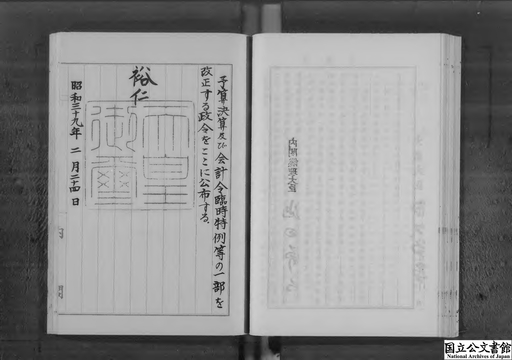 予算決算及び会計令臨時特例等の一部を
改正する政令をここに公布する。
裕仁
天皇
御璽
昭和三十九年二月二十四日
内閣総理大臣
国立公文書館
National Archives of Japan